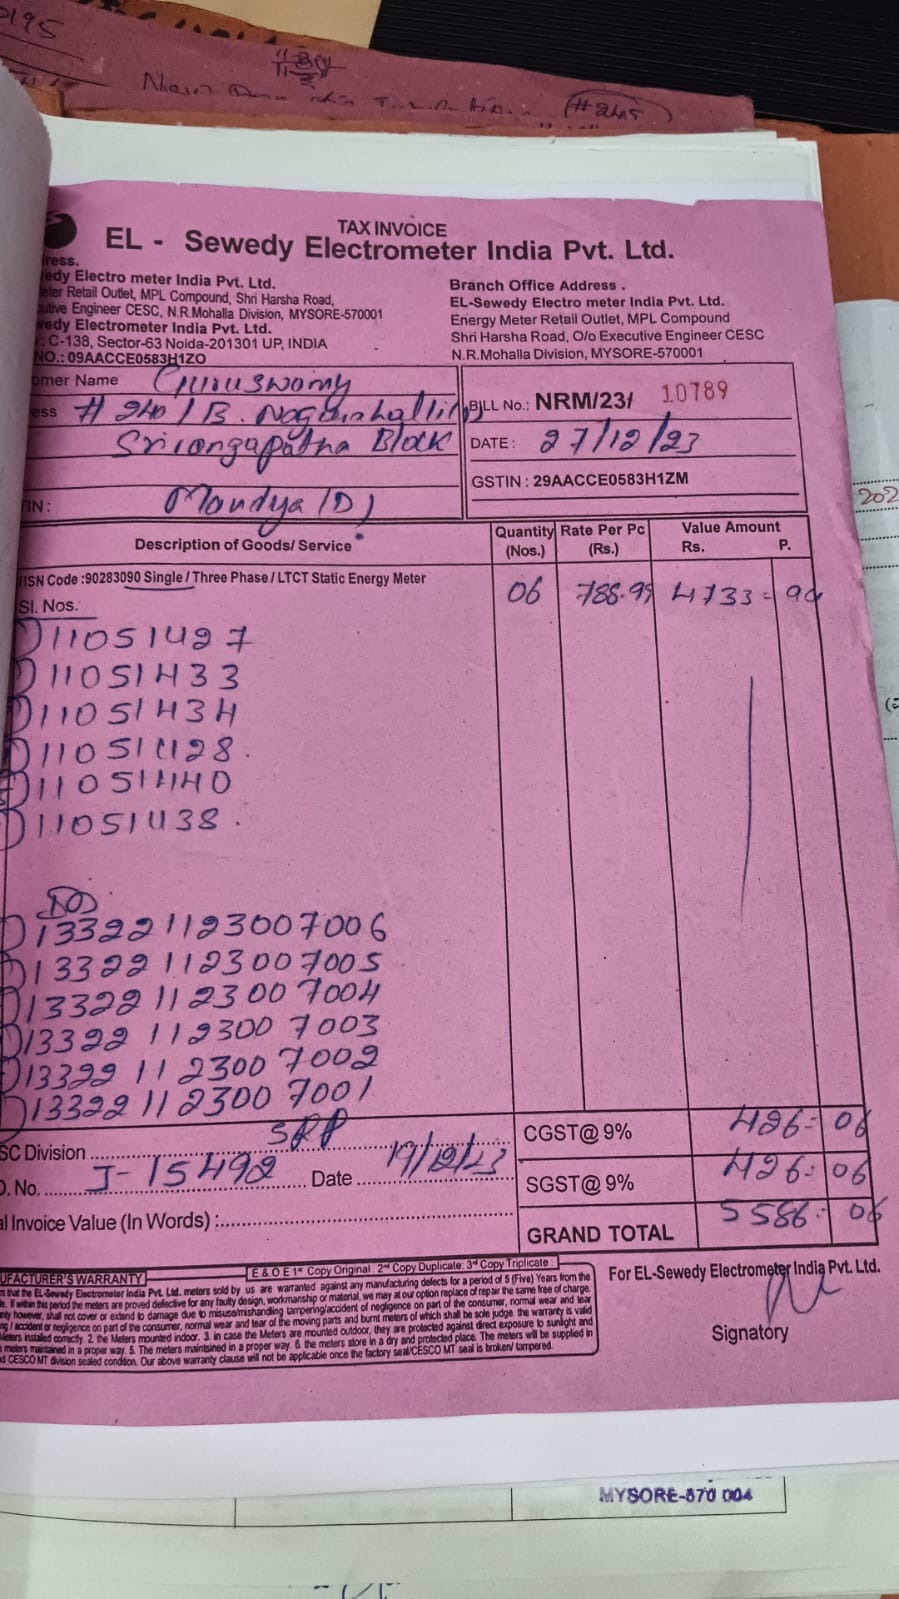 TAX INVOICE
EL - Sewedy Electrometer India Pvt. Ltd.
ress.
edy Electro meter India Pvt. Ltd.
eter Retail Outlet, MPL Compound, Shri Harsha Road,
utive Engineer CESC, N.R.Mohalla Division, MYSORE-570001
wedy Electrometer India Pvt. Ltd.
: C-138, Sector-63 Noida-201301 UP, INDIA
NO.: 09AACCE0583H1ZO
Branch Office Address .
EL-Sewedy Electro meter India Pvt. Ltd.
Energy Meter Retail Outlet, MPL Compound
Shri Harsha Road, O/o Executive Engineer CESC
N.R.Mohalla Division, MYSORE-570001
omer Name Guruswamy
ess # 240 / B.
Srirangapatna Block
IN : Mandya (D)
BILL No.: NRM/23/ 10789
DATE : 27/12/23
GSTIN : 29AACCE0583H1ZM
Description of Goods/ Service Quantity (Nos.) Rate Per Pc (Rs.) Value Amount Rs. P.
HSN Code :90283090 Single / Three Phase / LTCT Static Energy Meter 06 788.99 4733 = 94
Sl. Nos.
11051427
11051433
11051434
11051428
11051440
11051438
133221123007006
133221123007005
133221123007004
133221123007003
133221123007002
133221123007001
SC Division SRP
O. No. J-15492 Date 19/12/23
al Invoice Value (In Words) :
CGST@ 9% 426= 06
SGST@ 9% 426= 06
GRAND TOTAL 5586= 06
E & O.E 1st Copy Original : 2nd Copy Duplicate: 3rd Copy Triplicate :
UFACTURER'S WARRANTY
s that the EL-Sewedy Electrometer India Pvt. Ltd. meters sold by us are warranted against any manufacturing defects for a period of 5 (Five) Years from the
. If within this period the meters are proved defective for any faulty design, workmanship or material, we may at our option replace of repair the same free of charge.
nty however, shall not cover or extend to damage due to misuse/mishandling tampering/accident of negligence on part of the consumer, normal wear and tear
g / accident or negligence on part of the consumer, normal wear and tear of the moving parts and burnt meters of which shall be sole judge. the warranty is valid
Meters installed correctly. 2. the Meters mounted indoor. 3. in case the Meters are mounted outdoor, they are protected against direct exposure to sunlight and
meters maintained in a proper way. 5. The meters maintsined in a proper way. 6. the meters store in a dry and protected place. The meters will be supplied in
d CESCO MT division sealed condition. Our above warranty clause will not be applicable once the factory seal/CESCO MT seal is broken/ tampered.
For EL-Sewedy Electrometer India Pvt. Ltd.
Signatory
MYSORE-570 004